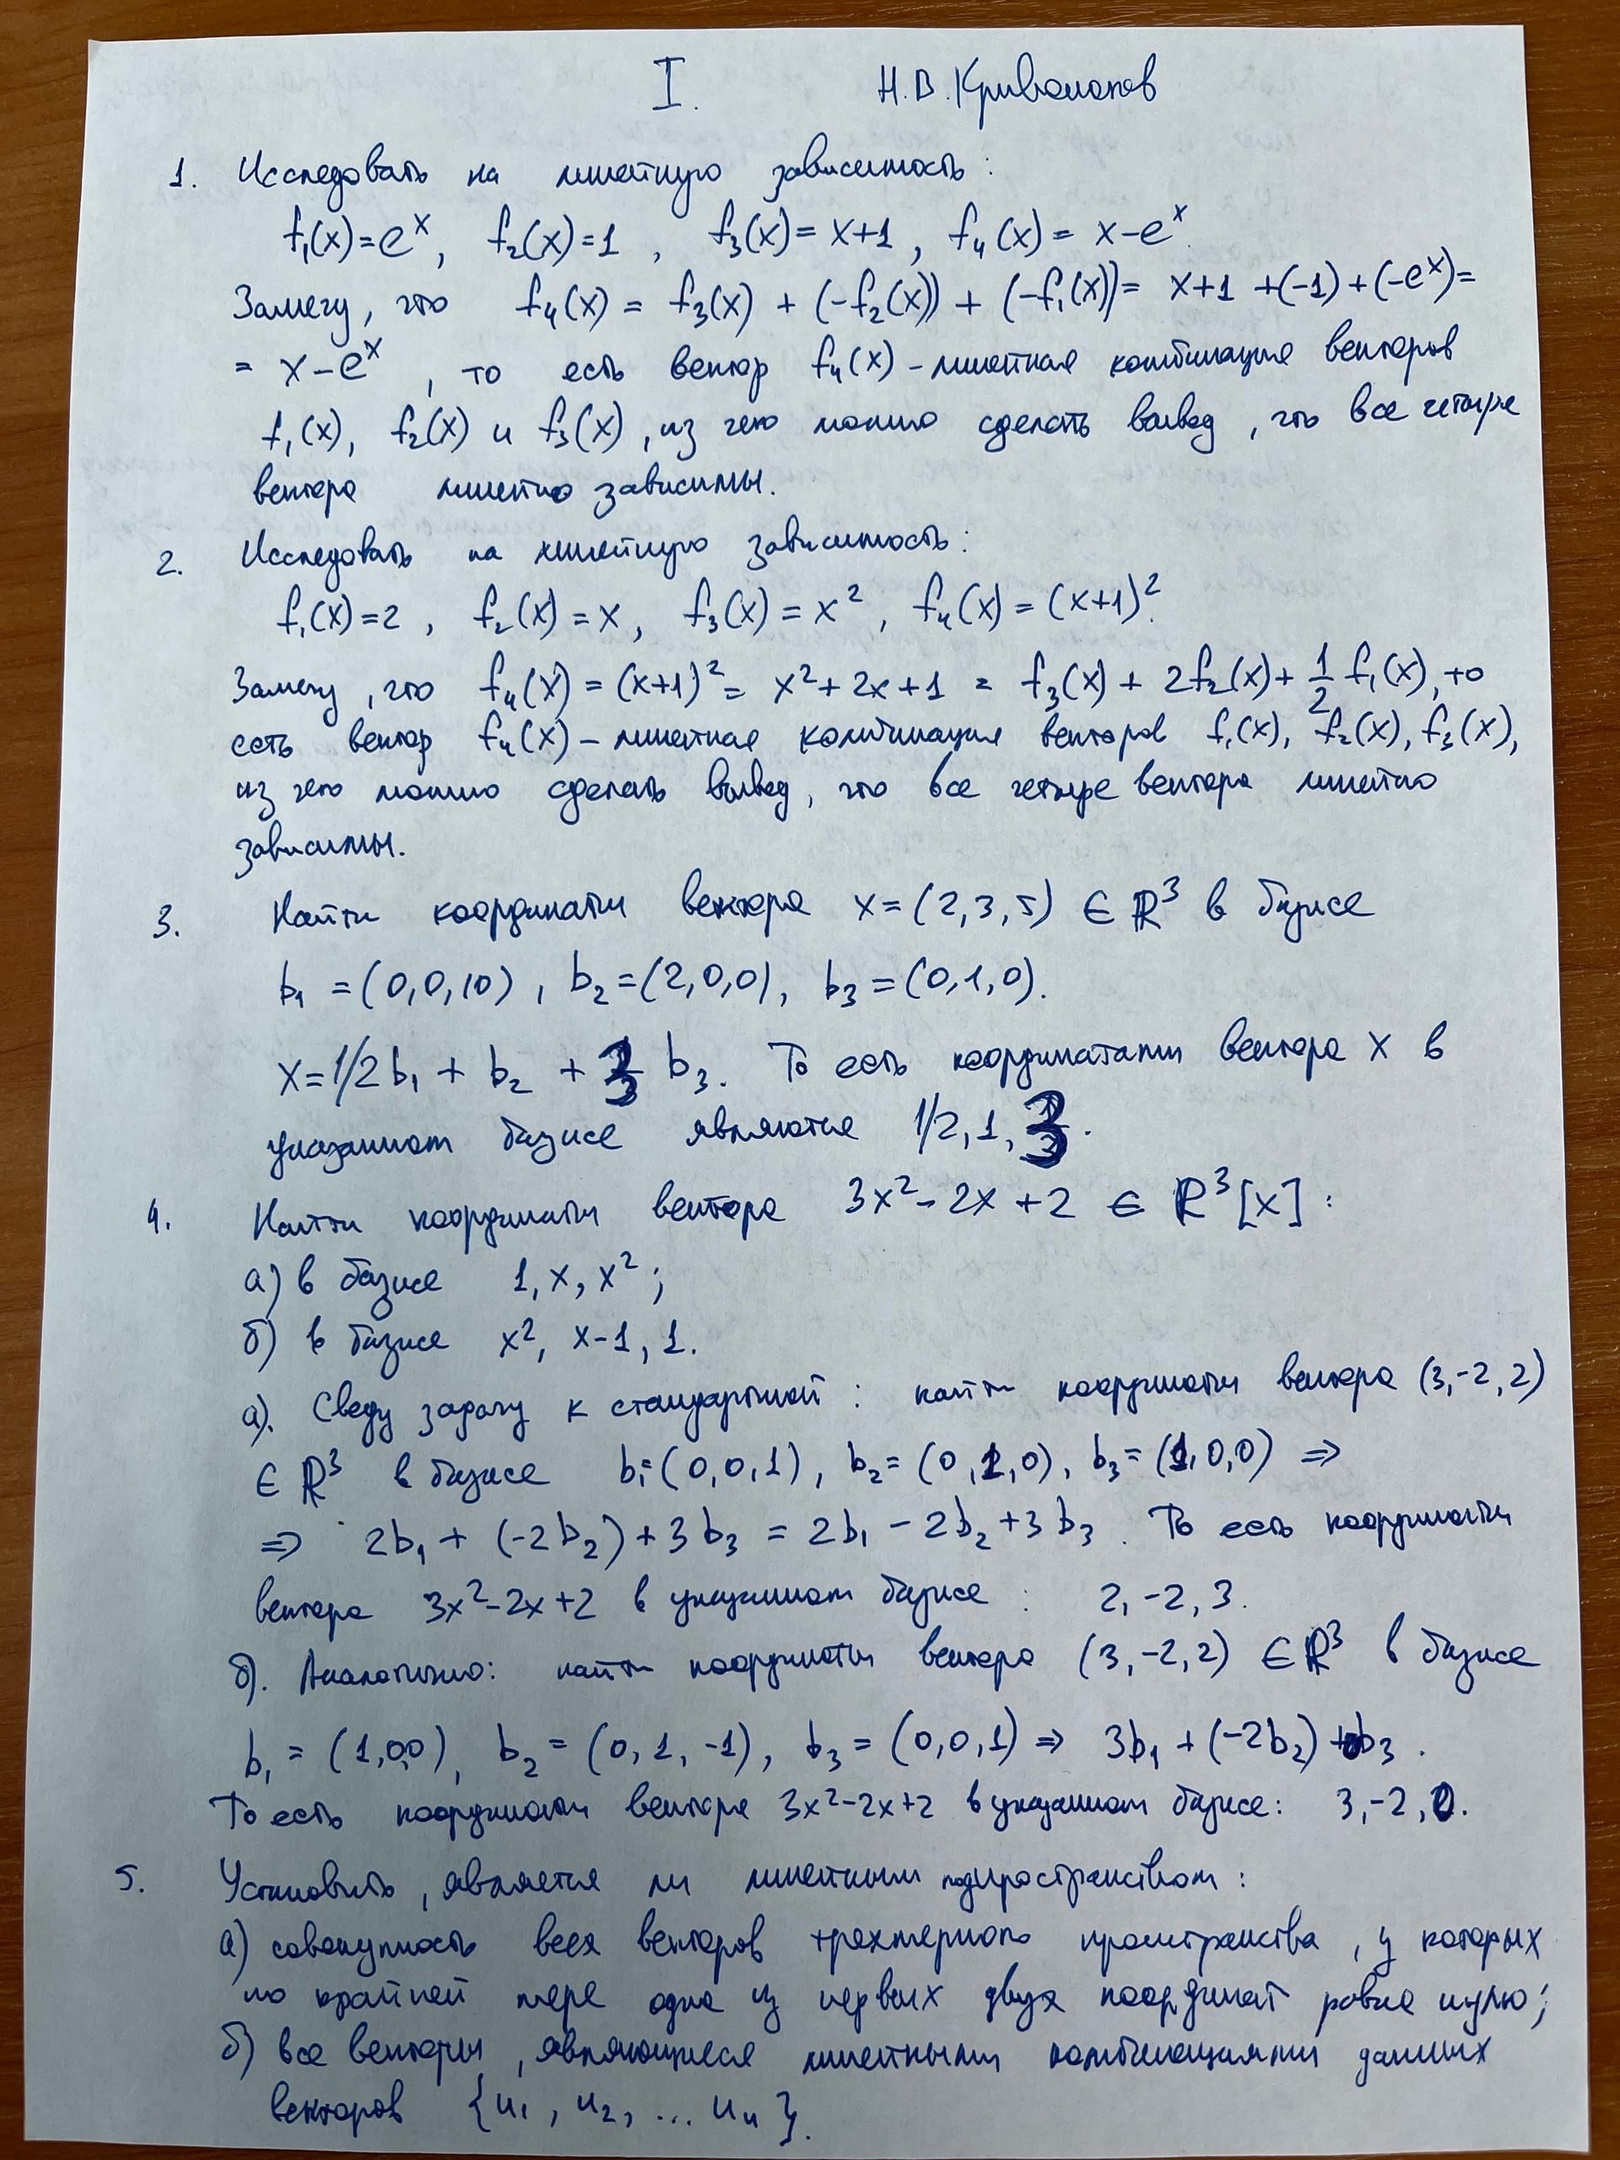 I. Н.В. Криволапов
1. Исследовать на линейную зависимость:
f₁(x)=eˣ, f₂(x)=1, f₃(x)=x+1, f₄(x)=x-eˣ.
Замечу, что f₄(x) = f₃(x) + (-f₂(x)) + (-f₁(x)) = x+1 +(-1)+(-eˣ)=
= x-eˣ, то есть вектор f₄(x) - линейная комбинация векторов
f₁(x), f₂(x) и f₃(x), из чего можно сделать вывод, что все четыре
вектора линейно зависимы.
2. Исследовать на линейную зависимость:
f₁(x)=2, f₂(x)=x, f₃(x)=x², f₄(x)=(x+1)².
Замечу, что f₄(x)=(x+1)²= x²+2x+1 = f₃(x)+2f₂(x)+1/2 f₁(x), то
есть вектор f₄(x) - линейная комбинация векторов f₁(x), f₂(x), f₃(x),
из чего можно сделать вывод, что все четыре вектора линейно
зависимы.
3. Найти координаты вектора x=(2,3,5) ∈ ℝ³ в базисе
b₁=(0,0,10), b₂=(2,0,0), b₃=(0,1,0).
x=1/2b₁ + b₂ + 3 b₃. То есть координатами вектора x в
указанном базисе являются 1/2, 1, 3.
4. Найти координаты вектора 3x²-2x+2 ∈ ℝ³[x]:
а) в базисе 1, x, x²;
б) в базисе x², x-1, 1.
а). Сведу задачу к стандартной: найти координаты вектора (3,-2,2)
∈ ℝ³ в базисе b₁=(0,0,1), b₂=(0,1,0), b₃=(1,0,0) ⇒
⇒ 2b₁+(-2b₂)+3b₃ = 2b₁-2b₂+3b₃. То есть координаты
вектора 3x²-2x+2 в указанном базисе: 2,-2,3.
б). Аналогично: найти координаты вектора (3,-2,2) ∈ℝ³ в базисе
b₁=(1,0,0), b₂=(0,1,-1), b₃=(0,0,1) ⇒ 3b₁+(-2b₂)+0b₃.
То есть координаты вектора 3x²-2x+2 в указанном базисе: 3,-2,0.
5. Установить, является ли линейным подпространством:
а) совокупность всех векторов трехмерного пространства, у которых
по крайней мере одна из первых двух координат равна нулю;
б) все векторы, являющиеся линейными комбинациями данных
векторов {u₁, u₂, ... uₙ}.